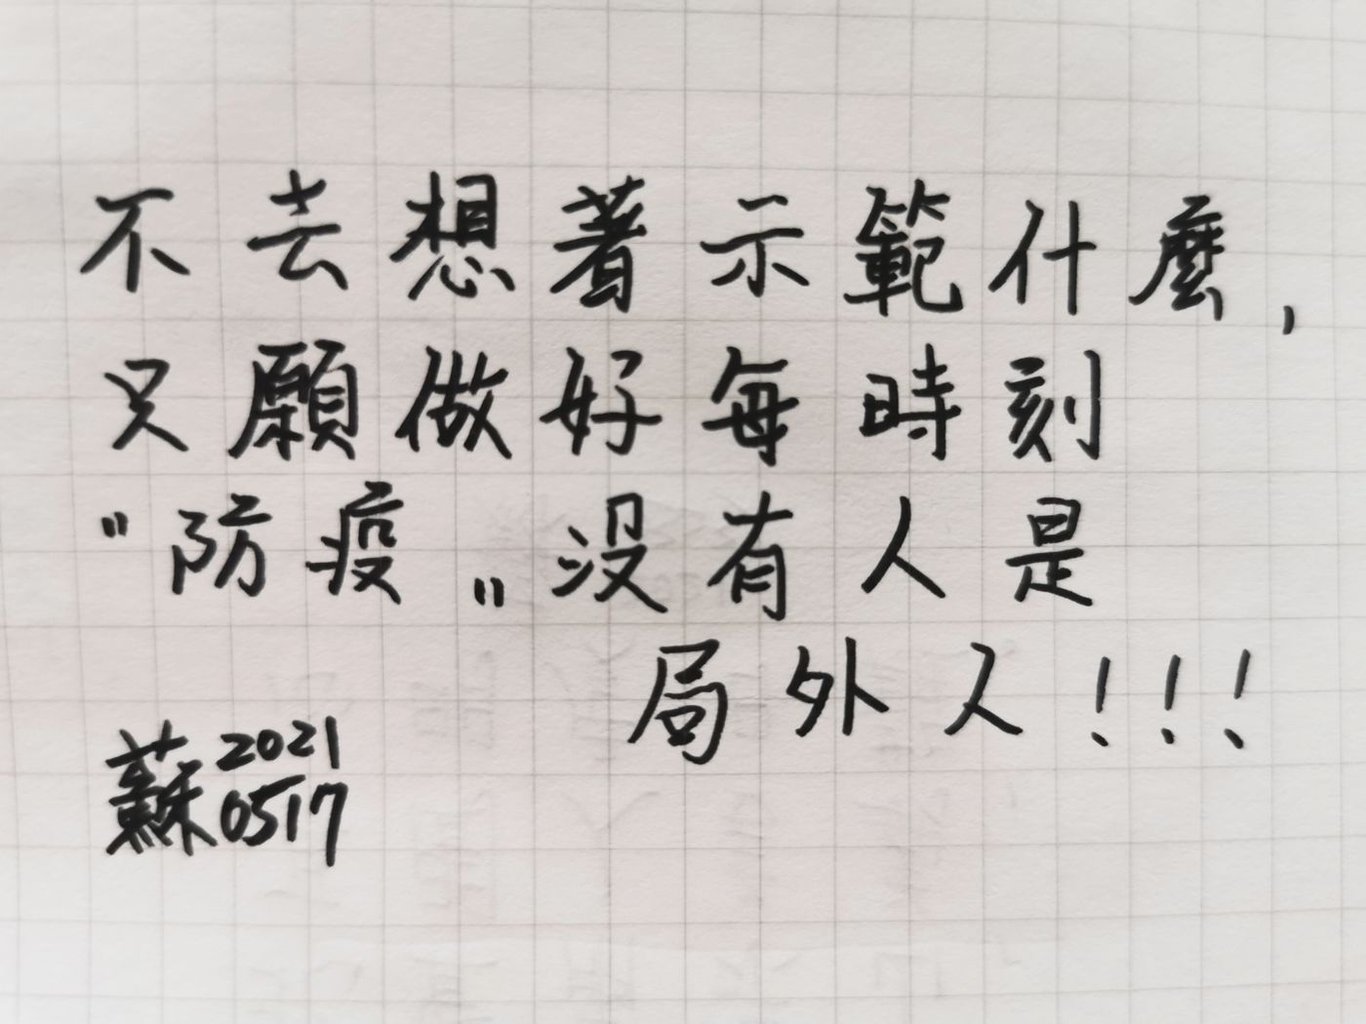 不去想著示範什麼,
只願做好每時刻
"防疫"没有人是
局外人!!!
蘇2021
0517